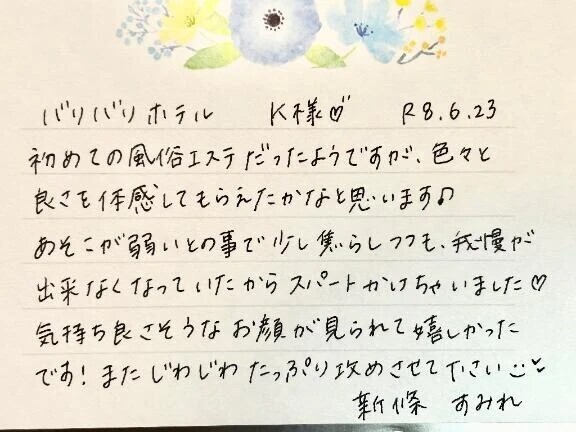 バリバリホテル K様♡ R8.6.23
初めての風俗エステだったようですが、色々と
良さを体感してもらえたかなと思います♪
あそこが弱いとの事で少し焦らしつつも、我慢が
出来なくなっていたからスパートかけちゃいました♡
気持ち良さそうなお顔が見られて嬉しかった
です！またじわじわたっぷり攻めさせて下さい
新條 すみれ